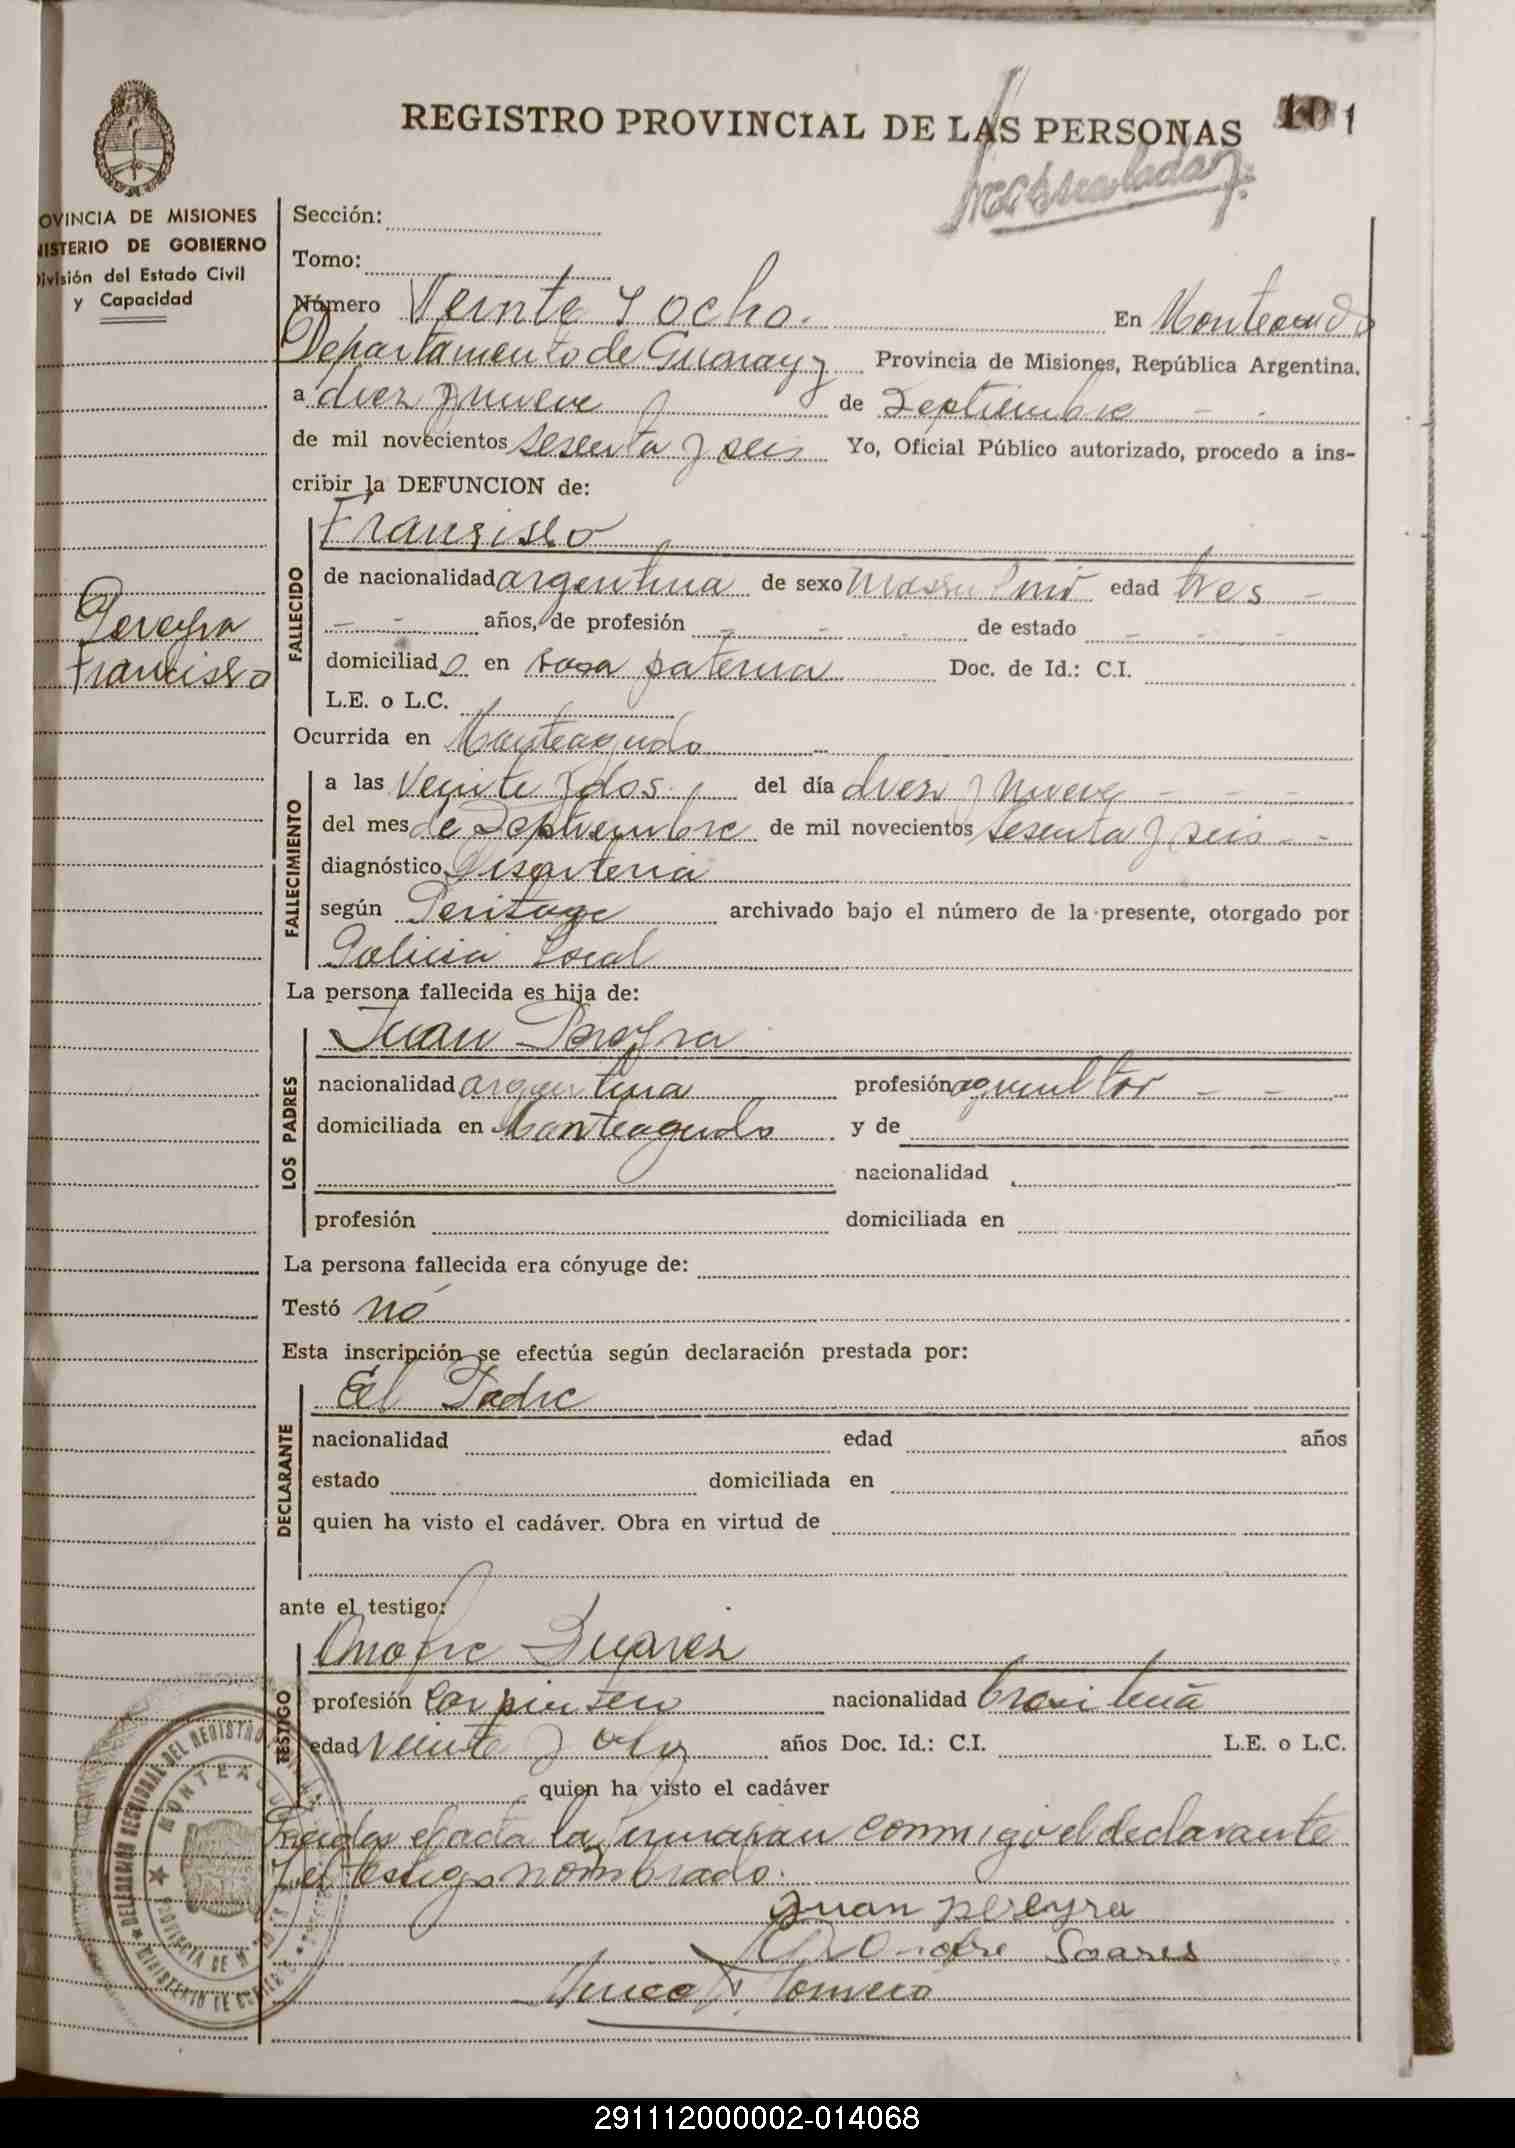 REGISTRO PROVINCIAL DE LAS PERSONAS 101
PROVINCIA DE MISIONES
MINISTERIO DE GOBIERNO
División del Estado Civil
y Capacidad
Sección:
Tomo:
Número Veinte y ocho. En Monteagudo
Departamento de Guarany Provincia de Misiones, República Argentina,
a diez y nueve de Septiembre
de mil novecientos sesenta y seis Yo, Oficial Público autorizado, procedo a ins-
cribir la DEFUNCION de:
Pereyra
Francisco
FALLECIDO
Francisco
de nacionalidad argentina de sexo masculino edad tres
años, de profesión de estado
domiciliado en casa paterna Doc. de Id.: C.I.
L.E. o L.C.
Ocurrida en Monteagudo
FALLECIMIENTO
a las veinte y dos del día diez y nueve
del mes de Septiembre de mil novecientos sesenta y seis
diagnóstico Disenteria
según Peritage archivado bajo el número de la presente, otorgado por
Policia Local
La persona fallecida es hija de:
LOS PADRES
Juan Pereyra
nacionalidad argentina profesión agricultor
domiciliada en Monteagudo y de
nacionalidad
profesión domiciliada en
La persona fallecida era cónyuge de:
Testó nó
Esta inscripción se efectúa según declaración prestada por:
DECLARANTE
El Padre
nacionalidad edad años
estado domiciliada en
quien ha visto el cadáver. Obra en virtud de
ante el testigo:
TESTIGO
Onofre Suarez
profesión Carpintero nacionalidad brasileña
edad veinte y ocho años Doc. Id.: C.I. L.E. o L.C.
quien ha visto el cadáver
acta la conmigo el declarante
y el testigo nombrado.
juan pereyra
Onofre Soares
DELEGACION SECCIONAL DEL REGISTRO
MONTEAGUDO
PROVINCIA DE MISIONES
MINISTERIO DE GOBIERNO
291112000002-014068